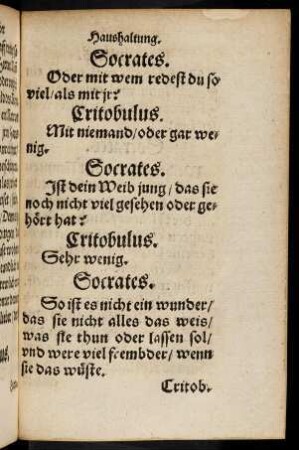 Haushaltung.
Socrates.
Oder mit wem redest du so
viel/als mit jr?
Critobulus.
Mit niemand/oder gar we-
nig.
Socrates.
Ist dein Weib jung/das sie
noch nicht viel gesehen oder ge-
hört hat?
Critobulus.
Sehr wenig.
Socrates.
So ist es nicht ein wunder/
das sie nicht alles das weis/
was sie thun oder lassen sol/
vnd were viel frembder/wenn
sie das wüste.
Critob.